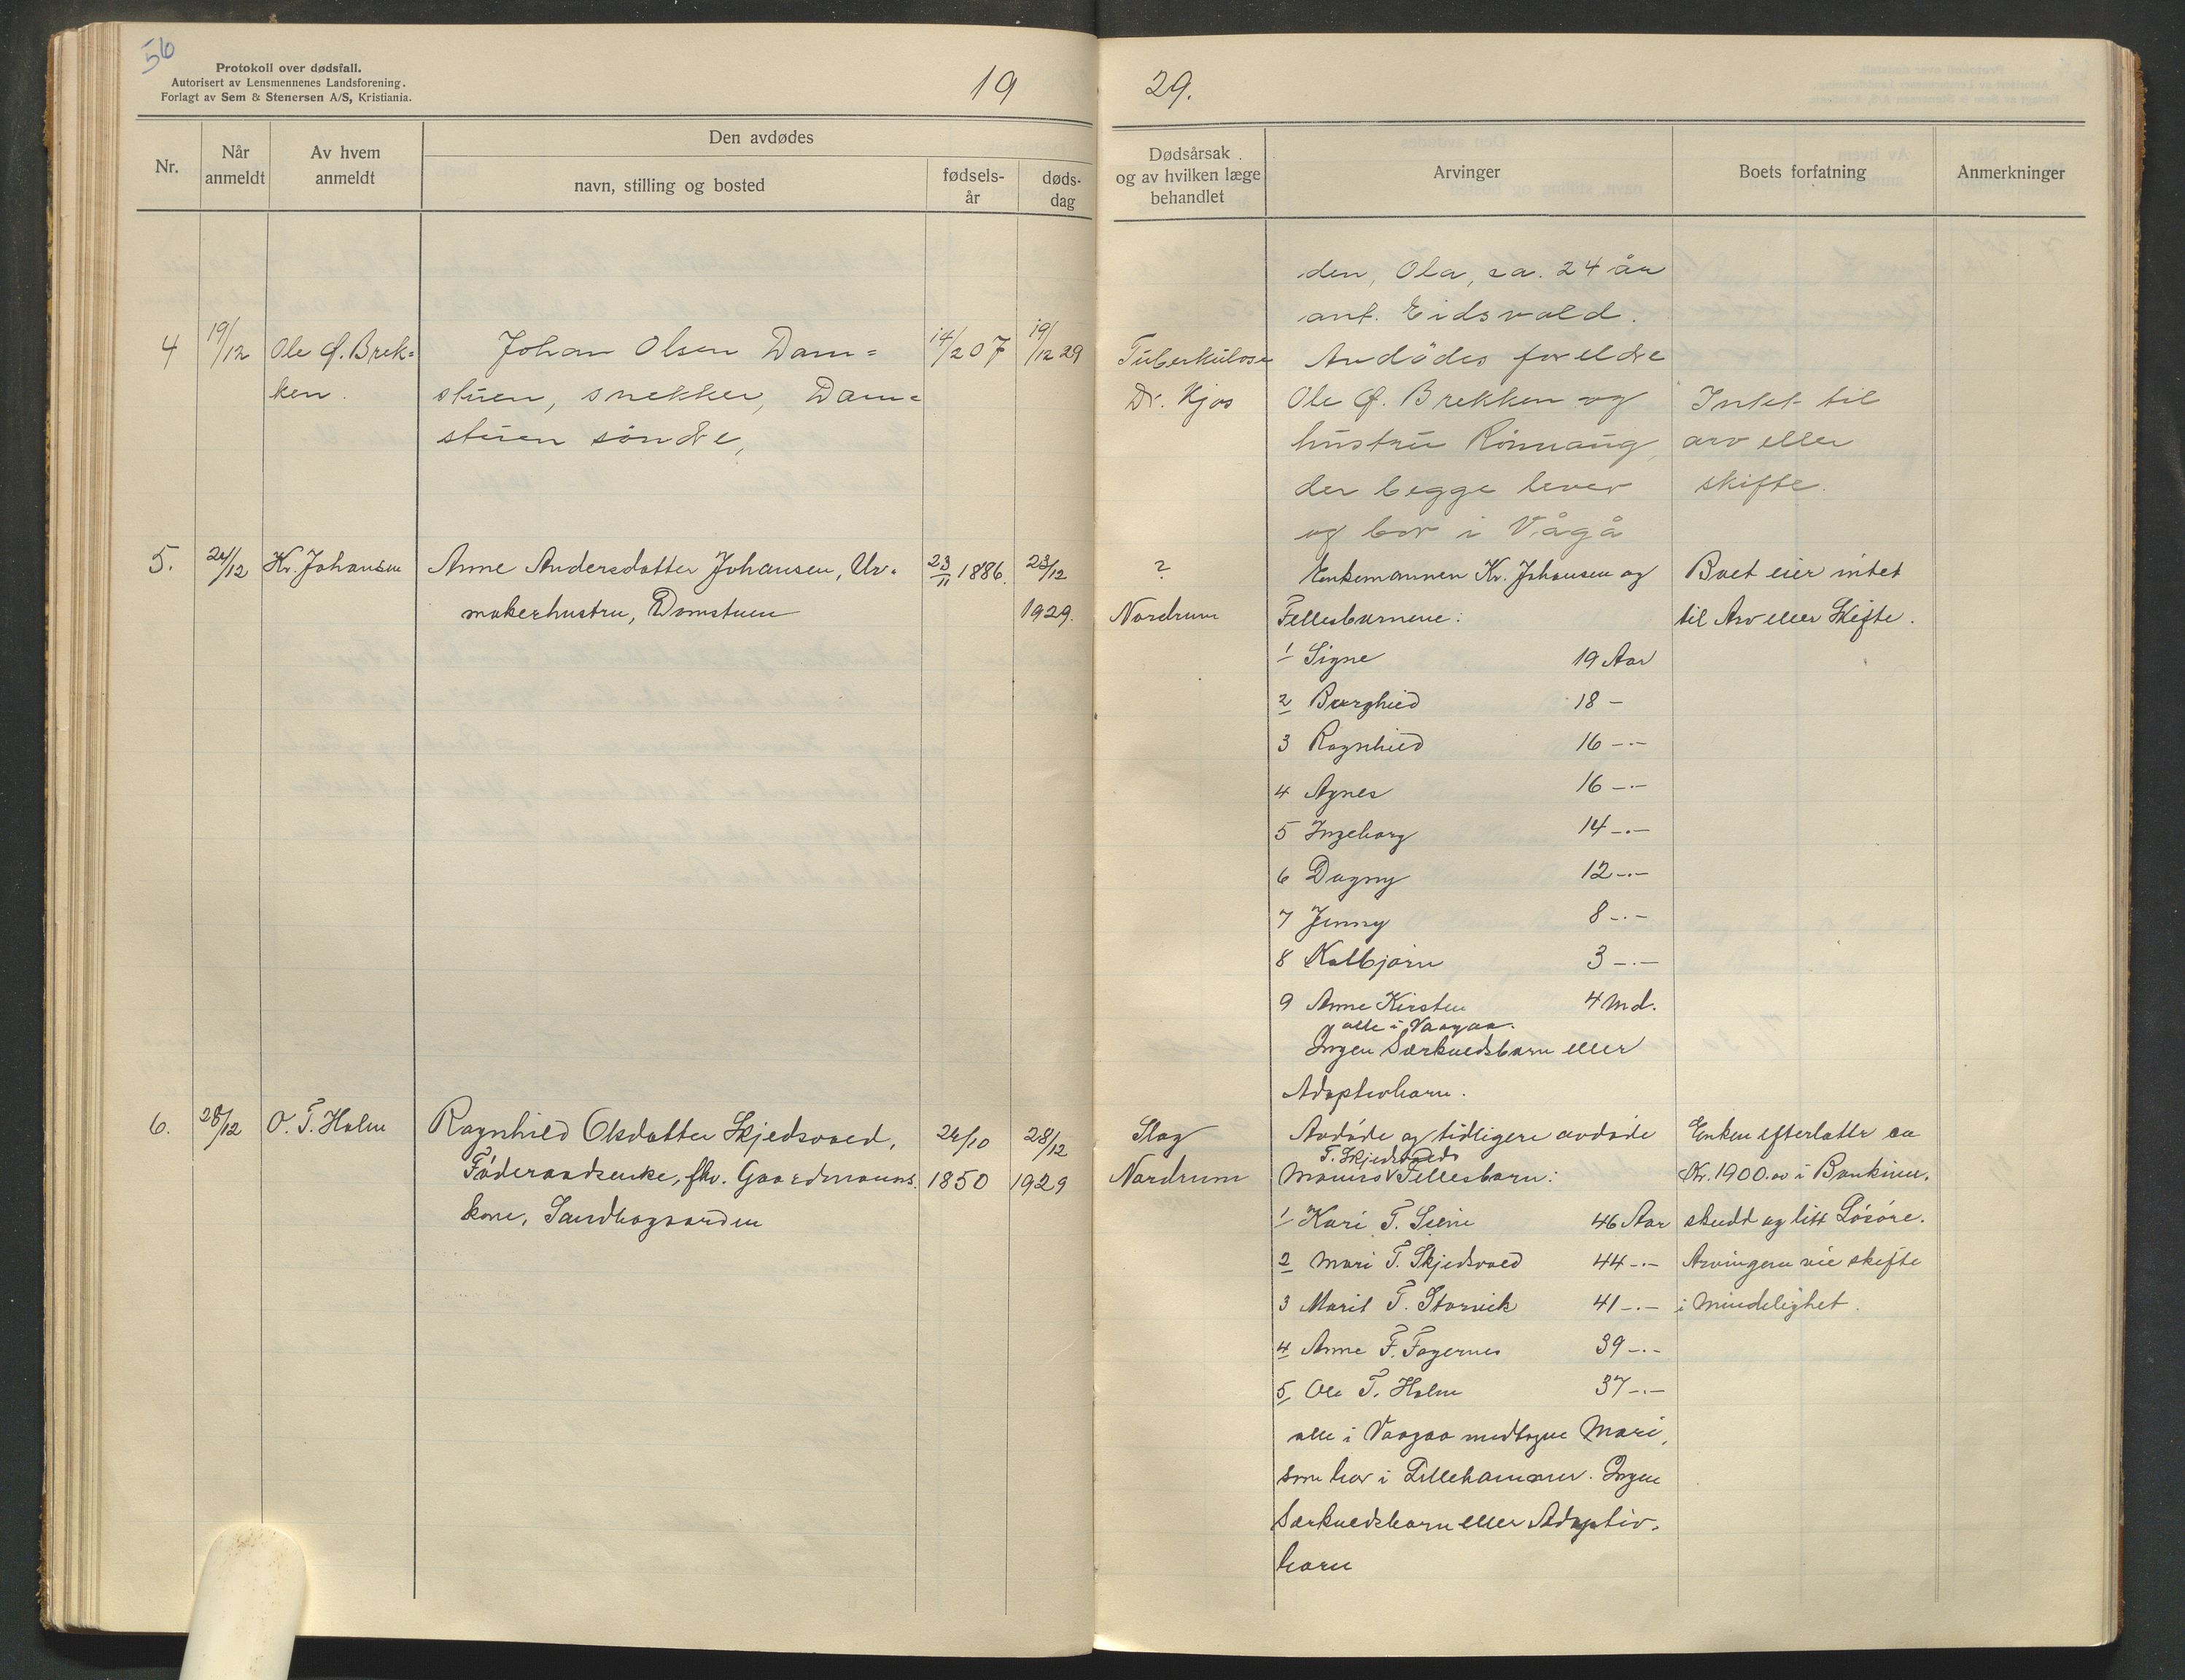 56
Protokoll over dødsfall.
Autorisert av Lensmennenes Landsforening.
Forlagt av Sem & Stenersen A/S, Kristiania.
19
29.
Nr.
Når anmeldt
Av hvem anmeldt
Den avdødes
navn, stilling og bosted
fødselsår
dødsdag
Dødsårsak og av hvilken læge behandlet
Arvinger
Boets forfatning
Anmerkninger
den, Ola, ca. 24 år
ant. Eidsvold.
4 19/12 Ole Ø. Brek= Johan Olsen Dam= 14/2 07 19/12 29 Tuberkulose Avdødes foreldre
ken. stuen, snekker, Dam= Dr. Kjos Ole Ø. Brekken og Intet til
stuen søndre, hustru Rönnaug, arv eller
der begge lever skifte.
og bor i Vågå
5. 24/12 Kr. Johansen Anne Andersdatter Johansen, Ur- 23/11 1886. 23/12 ? Enkemannen Kr. Johansen og Boet eier intet
makerhustru, Damstuen 1929. Nordrum Fellesbarnene: til Arv eller Skifte.
1 Signe 19 Aar
2 Borghild 18 -
3 Ragnhild 16 -.-
4 Agnes 16 -.-
5 Ingeborg 14 -.-
6 Dagny 12 -.-
7 Jenny 8 -.-
8 Kolbjørn 3 -.-
9 Anne Kirsten 4 Md.
alle i Vaagaa.
Ingen Særkuldsbarn eller
Adoptivbarn.
6. 28/12 O. T. Holm Ragnhild Olsdatter Skjedsvold, 24/10 28/12 Slag Avdøde og tidligere avdøde Enken efterlatte ca
T. Skjedsvolds
Føderaadsenke, fhv. Gaardmanns- 1850 1929 Nordrum Manns V Fellesbarn: Kr. 1900.00 i Bankinn-
kone, Sandbogaarden 1 Kari T. Lien 46 Aar skudd og litt Løsøre.
2 Mari T. Skjedsvold 44 -.- Arvingene vil skifte
3 Marit T. Storvik 41 -.- i Mindelighet.
4 Anne T. Fagernes 39 -.-
5 Ole T. Holm 37 -.-
alle i Vaagaa medtagne Mari,
som bor i Lillehammer. Ingen
Særkuldsbarn eller Adoptiv-
barn